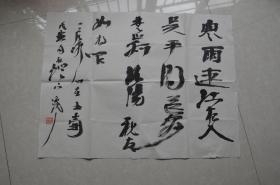 寒雨連江夜入
吳平明送客
楚山孤洛陽親友
如相問
一片冰心在玉壺